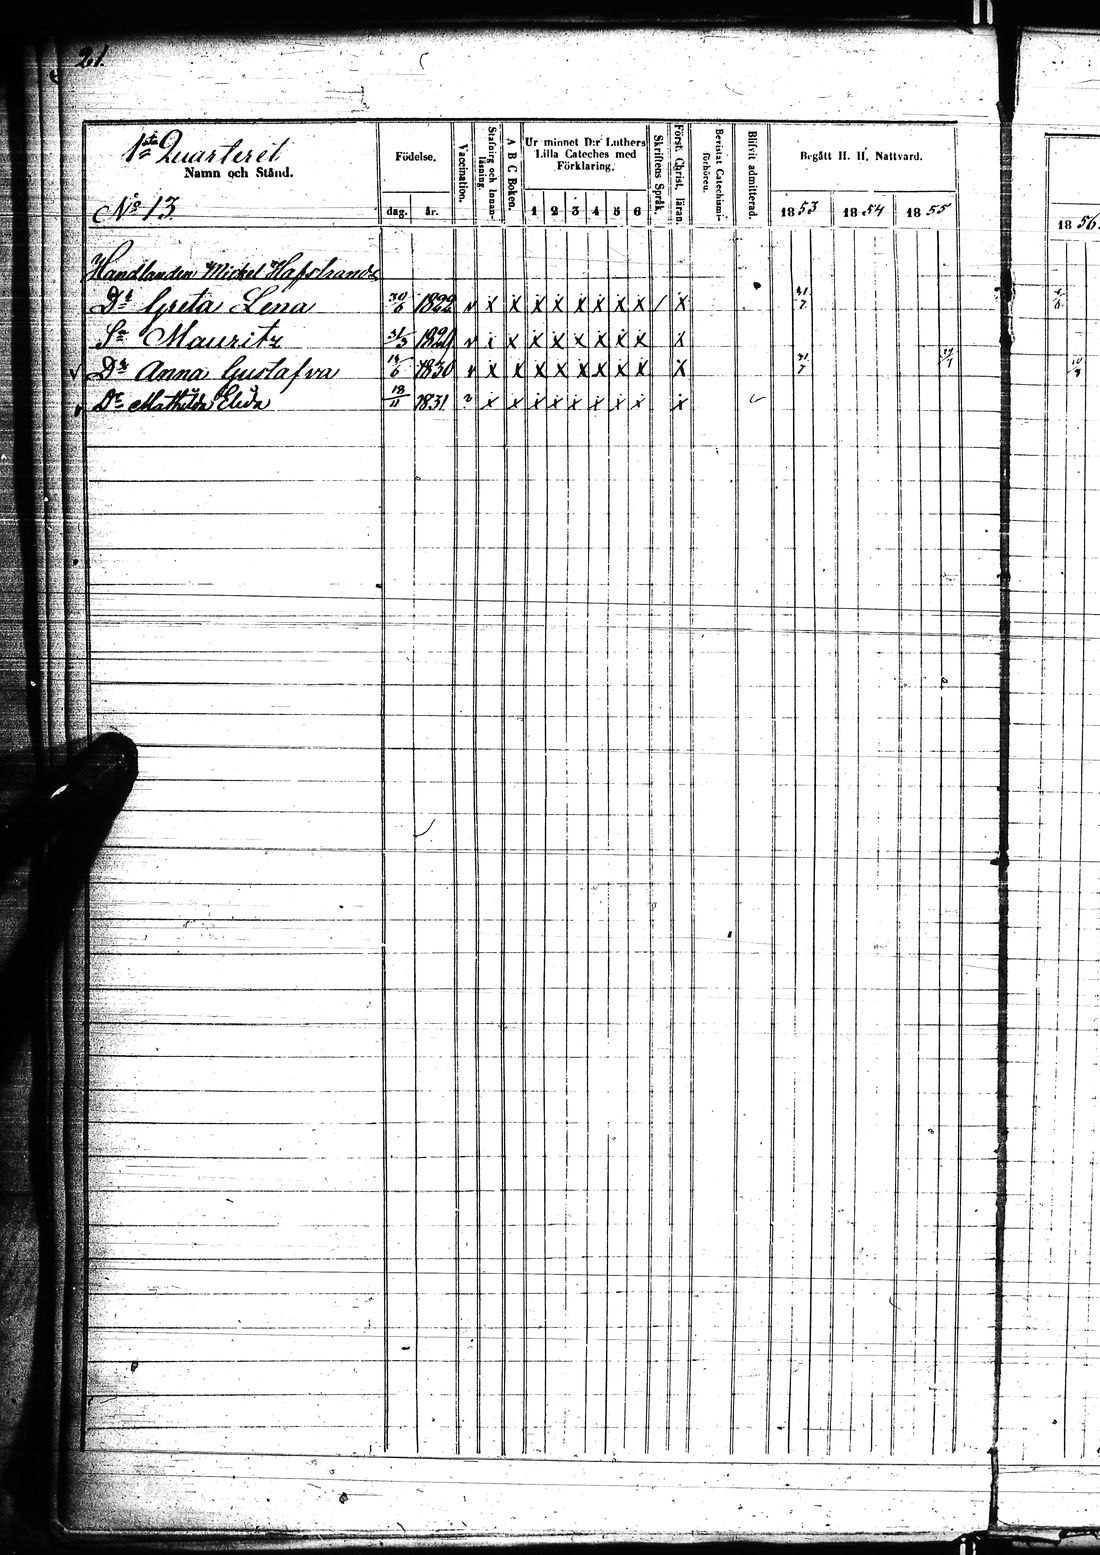 21.
1sta Quarteret
Namn och Stånd.
No 13
Födelse.
dag. år.
Vaccination.
Stafning och Innanläsning.
A B C Boken.
Ur minnet D:r Luthers
Lilla Cateches med
Förklaring.
1 2 3 4 5 6
Skriftens Språk.
Först. Christ. läran.
Bevistat Catechismi-
förhören.
Blifvit admitterad.
Begått H. H. Nattvard.
1853 1854 1855
1856.
Handlanden Mickel Hafstrands
Dr Greta Lena 30/6 1822 v x x x x x x x x / x 31/7
Sn Mauritz 31/3 1829 v x x x x x x x x x
v Dr Anna Gustafva 14/6 1830 v x x x x x x x x x 31/7
Dr Mathilda Elida 18/11 1831 ? x x x x x x x x x